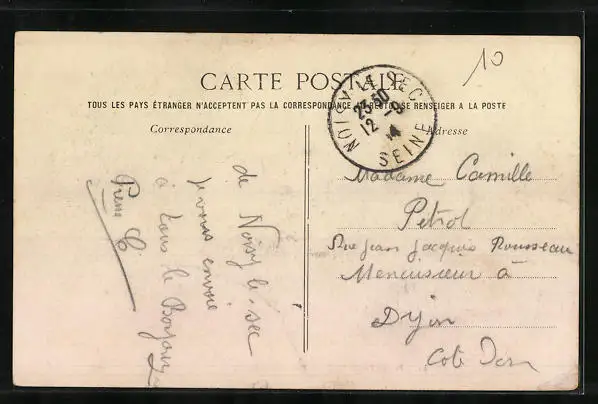 10
CARTE POSTALE
TOUS LES PAYS ÉTRANGER N'ACCEPTENT PAS LA CORRESPONDANCE SE RENSEIGER A LA POSTE
Correspondance
Adresse
NOISY-LE-SEC
23 50
12 -9
14
SEINE
de Noisy le-sec
je vous envoie
à tous le Bonjour
Pierre C
Madame Camille
Petrol
Rue Jean Jacques Rousseau
Menuisieur à
Dijon
Cote Dor